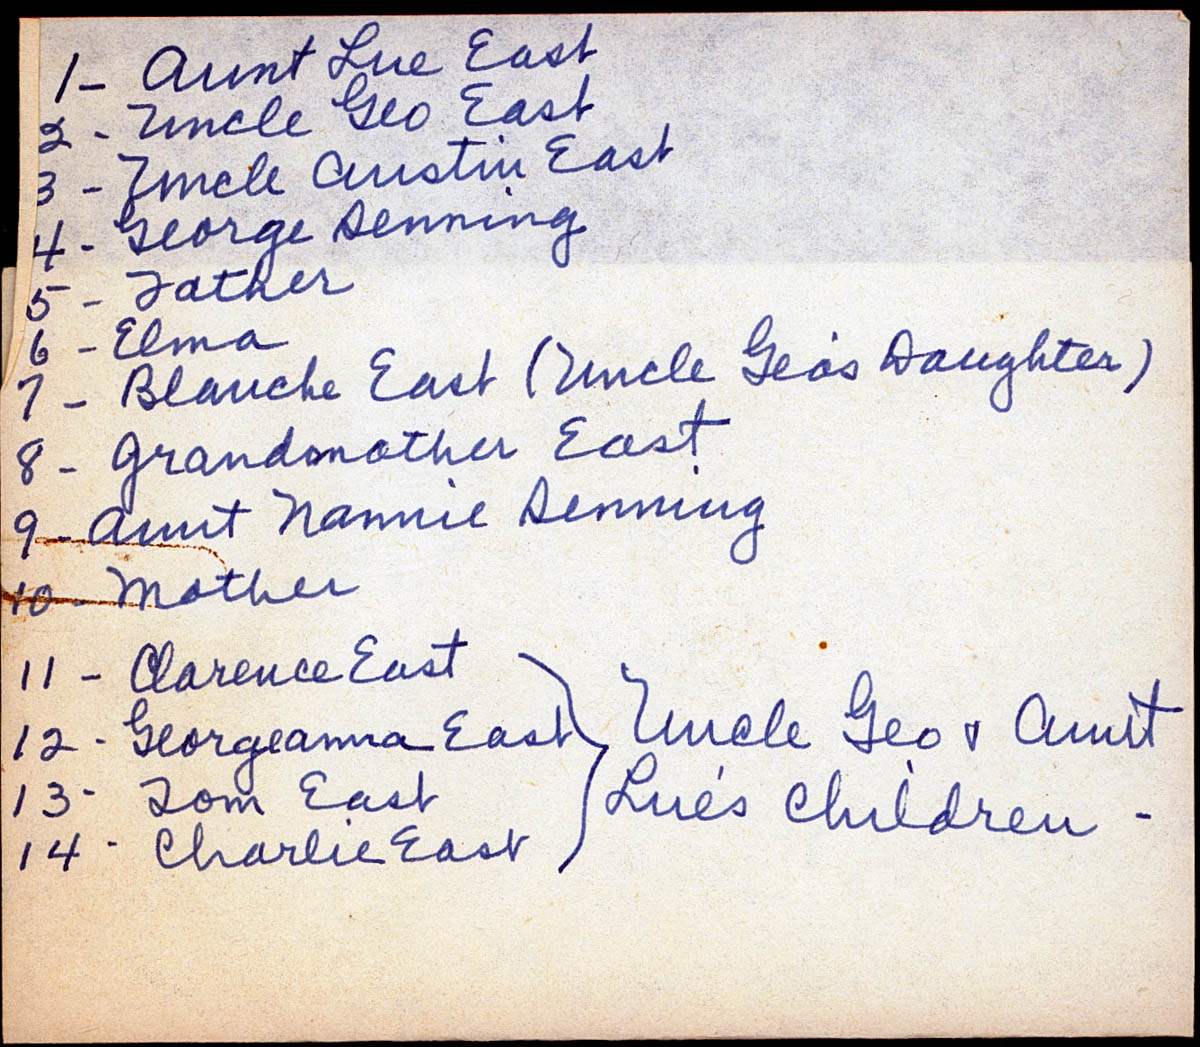 1 - Aunt Lue East
2 - Uncle Geo East
3 - Uncle Austin East
4 - George Denning
5 - Father
6 - Elma
7 - Blanche East (Uncle Geo's Daughter)
8 - Grandmother East
9 - Aunt Nannie Denning
10 - Mother
11 - Clarence East
12 - Georgeanna East
13 - Tom East
14 - Charlie East
Uncle Geo & Aunt
Lue's Children -